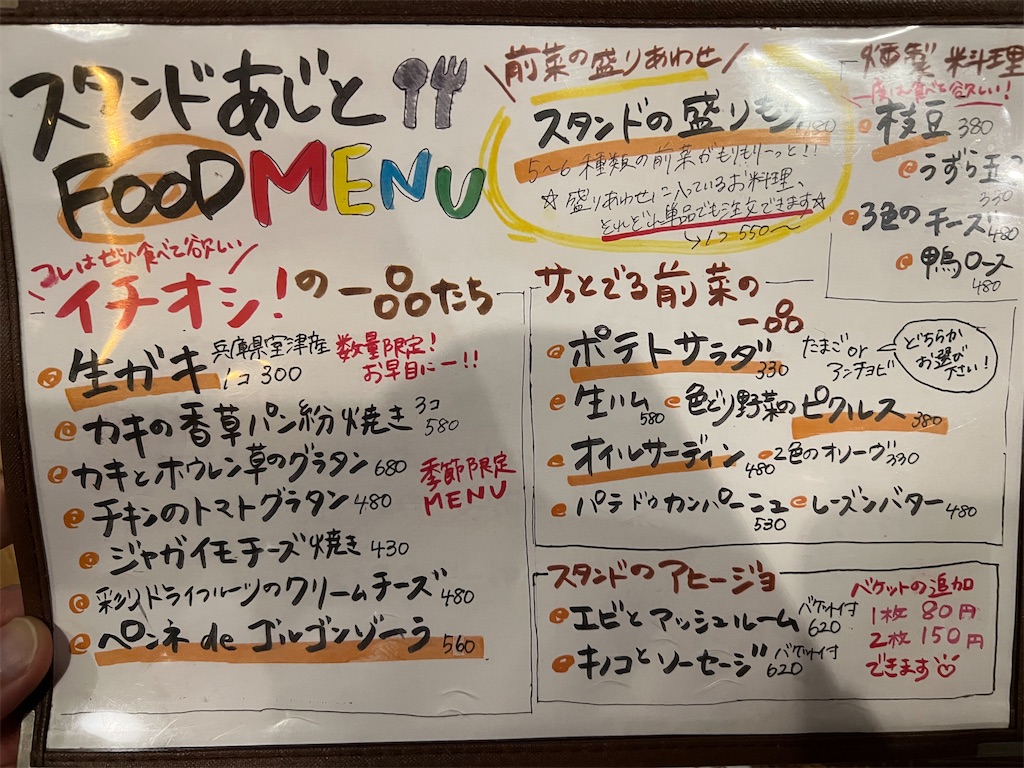 スタンドあじと
FOOD MENU
前菜の盛りあわせ
スタンドの盛りもり
5〜6種類の前菜がもりもりーっと!!
☆盛りあわせに入っているお料理、
それぞれ単品でも注文できます☆
↳1コ 550〜
燻製 料理
一度は食べて欲しい!
枝豆 380
うずら玉子
3色のチーズ 480
鴨ロース
480
コレはぜひ食べて欲しい
イチオシ!の一品たち
生ガキ 兵庫県室津産 数量限定!
1コ 300 お早目にー!!
カキの香草パン粉焼き 3コ 580
カキとホウレン草のグラタン 680
季節限定
MENU
チキンのトマトグラタン 480
ジャガイモチーズ焼き 430
彩りドライフルーツのクリームチーズ 480
ペンネ de ゴルゴンゾーラ 560
サッとでる前菜の
一品
ポテトサラダ 330 たまごor アンチョビ
どちらか
お選び
下さい!
生ハム 580 色どり野菜のピクルス 380
オイルサーディン 480 2色のオリーヴ 330
パテドゥカンパーニュ 530 レーズンバター 480
スタンドのアヒージョ
エビとマッシュルーム バケット付 620
キノコとソーセージ バケット付 620
バケットの追加
1枚 80円
2枚 150円
できます♡